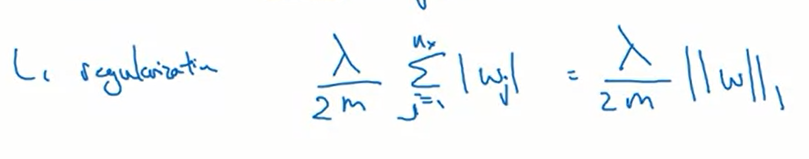 L₁ regularization λ/2m ∑_{j=1}^{nₓ} |wⱼ| = λ/2m ||w||₁